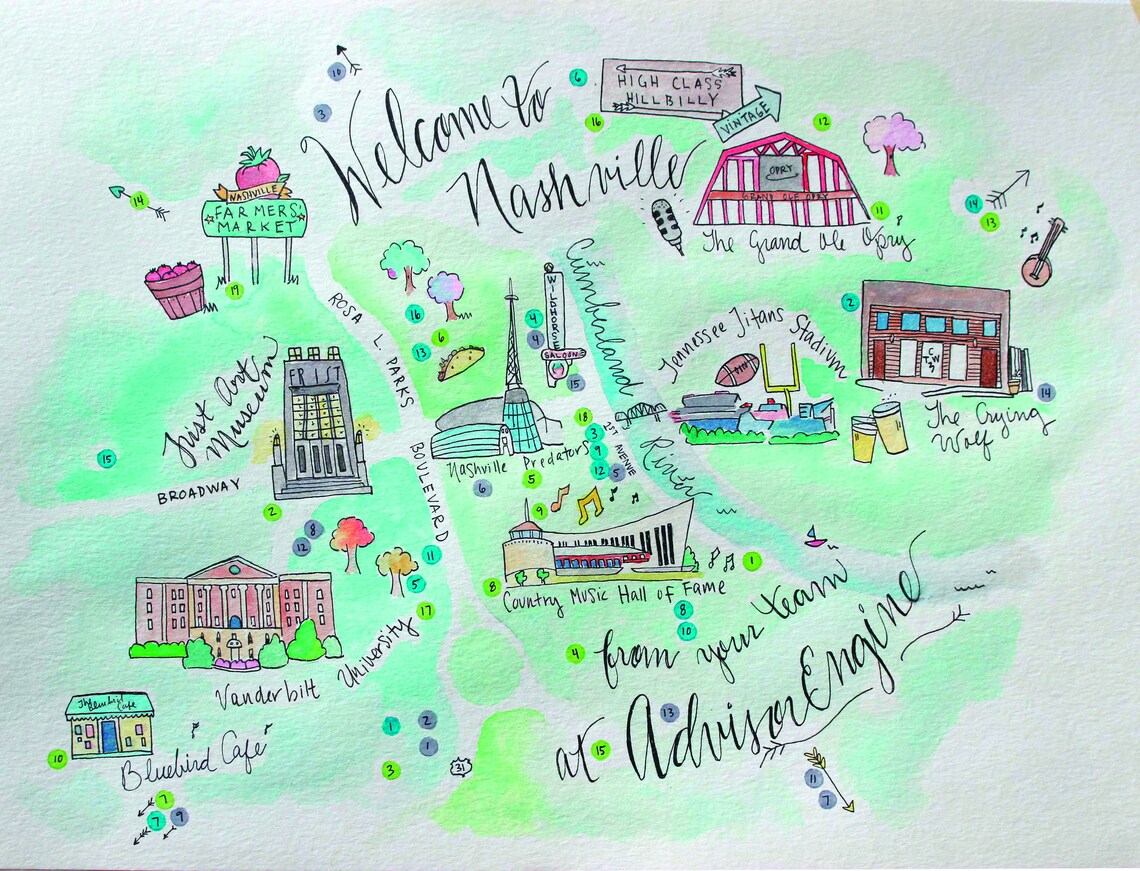 Welcome to
Nashville
HIGH CLASS
HILLBILLY
VINTAGE
OPRY
GRAND OLE OPRY
The Grand Ole Opry
NASHVILLE
FARMERS'
MARKET
ROSA L. PARKS
BOULEVARD
WILDHORSE
SALOON
Cumberland
River
Tennessee Titans Stadium
The Crying
Wolf
Frist Art
Museum
FRIST
BROADWAY
Nashville Predators
2ND AVENUE
Country Music Hall of Fame
Vanderbilt University
The Bluebird Cafe
Bluebird Cafe
31
from your team
at AdvisorEngine
10
3
6
16
12
11
14
13
14
19
16
13
6
4
4
15
2
14
18
3
9
12
5
6
5
15
2
8
12
9
8
1
11
5
17
8
10
4
1
2
1
3
13
15
10
7
7
9
11
7